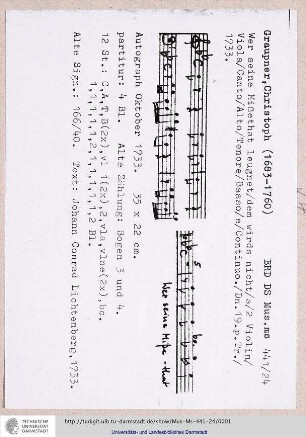 Graupner, Christoph (1683-1760) BRD DS Mus.ms 441/24
Wer seine Mißethat leugnet/dem wirds nicht/a/2 Violin/
Viola/Canto/Alto/Tenore/Basso/e/Continuo./Dn.19.p.Tr./
1733.
Wer seine Miße-that
Autograph Oktober 1733. 35 x 22 cm.
partitur: 4 Bl. Alte Zählung: Bogen 3 und 4.
12 St.: C,A,T,B(2x),vl 1(2x),2,vla,vlne(2x),bc.
1,1,1,1,1,2,1,1,1,1,1,2 Bl.
Alte Sign.: 166/40. Text: Johann Conrad Lichtenberg,1733.
TECHNISCHE
UNIVERSITÄT
DARMSTADT
http://tudigit.ulb.tu-darmstadt.de/show/Mus-Ms-441-24/0001
Universitäts- und Landesbibliothek Darmstadt